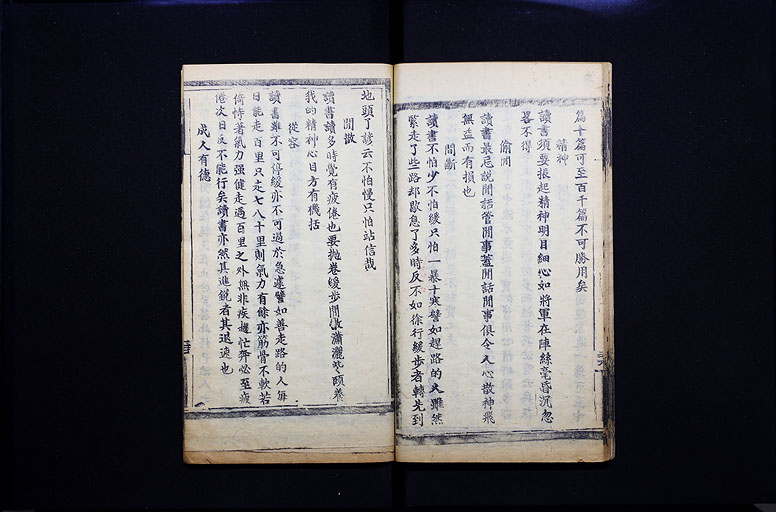 篇十篇可至一百千篇不可勝用矣
精神
讀書須要振起精神明目細心如將軍在陣絲毫昏沉忽
畧不得
偷閒
讀書最忌說閒話管閒事蓋閒話閒事俱令人心散神飛
無益而有損也
間斷
讀書不怕少不怕緩只怕一暴十寒譬如趕路的人雖然
緊走了些路却歇息了多時反不如徐行緩步者轉先到
地頭了諺云不怕慢只怕站信哉
閒散
讀書讀多時覺有疲倦也要抛卷緩步閒散瀟灑以頤養
我的精神心目方有機括
從容
讀書雖不可停緩亦不可過於急遽譬如善走路的人每
日能走百里只走七八十里則氣力有餘亦筋骨不軟若
倚恃著氣力强健走過百里之外無非疾趨忙奔必至疲
倦次日反不能行矣讀書亦然其進銳者其退速也
成人有德